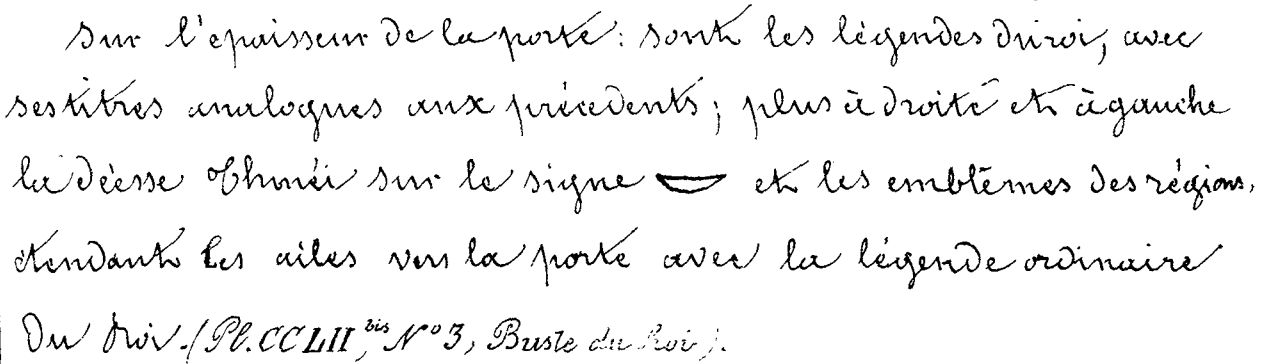 Sur l'epaisseur de la porte: sont les légendes du roi, avec
ses titres analogues aux précedents; plus à droite et à gauche
la déesse Thméi sur le signe 𓎟 et les emblêmes des régions,
étendant les ailes vers la porte avec la légende ordinaire
du Roi. (Pl. CCLII, bis N° 3, Buste du Roi).